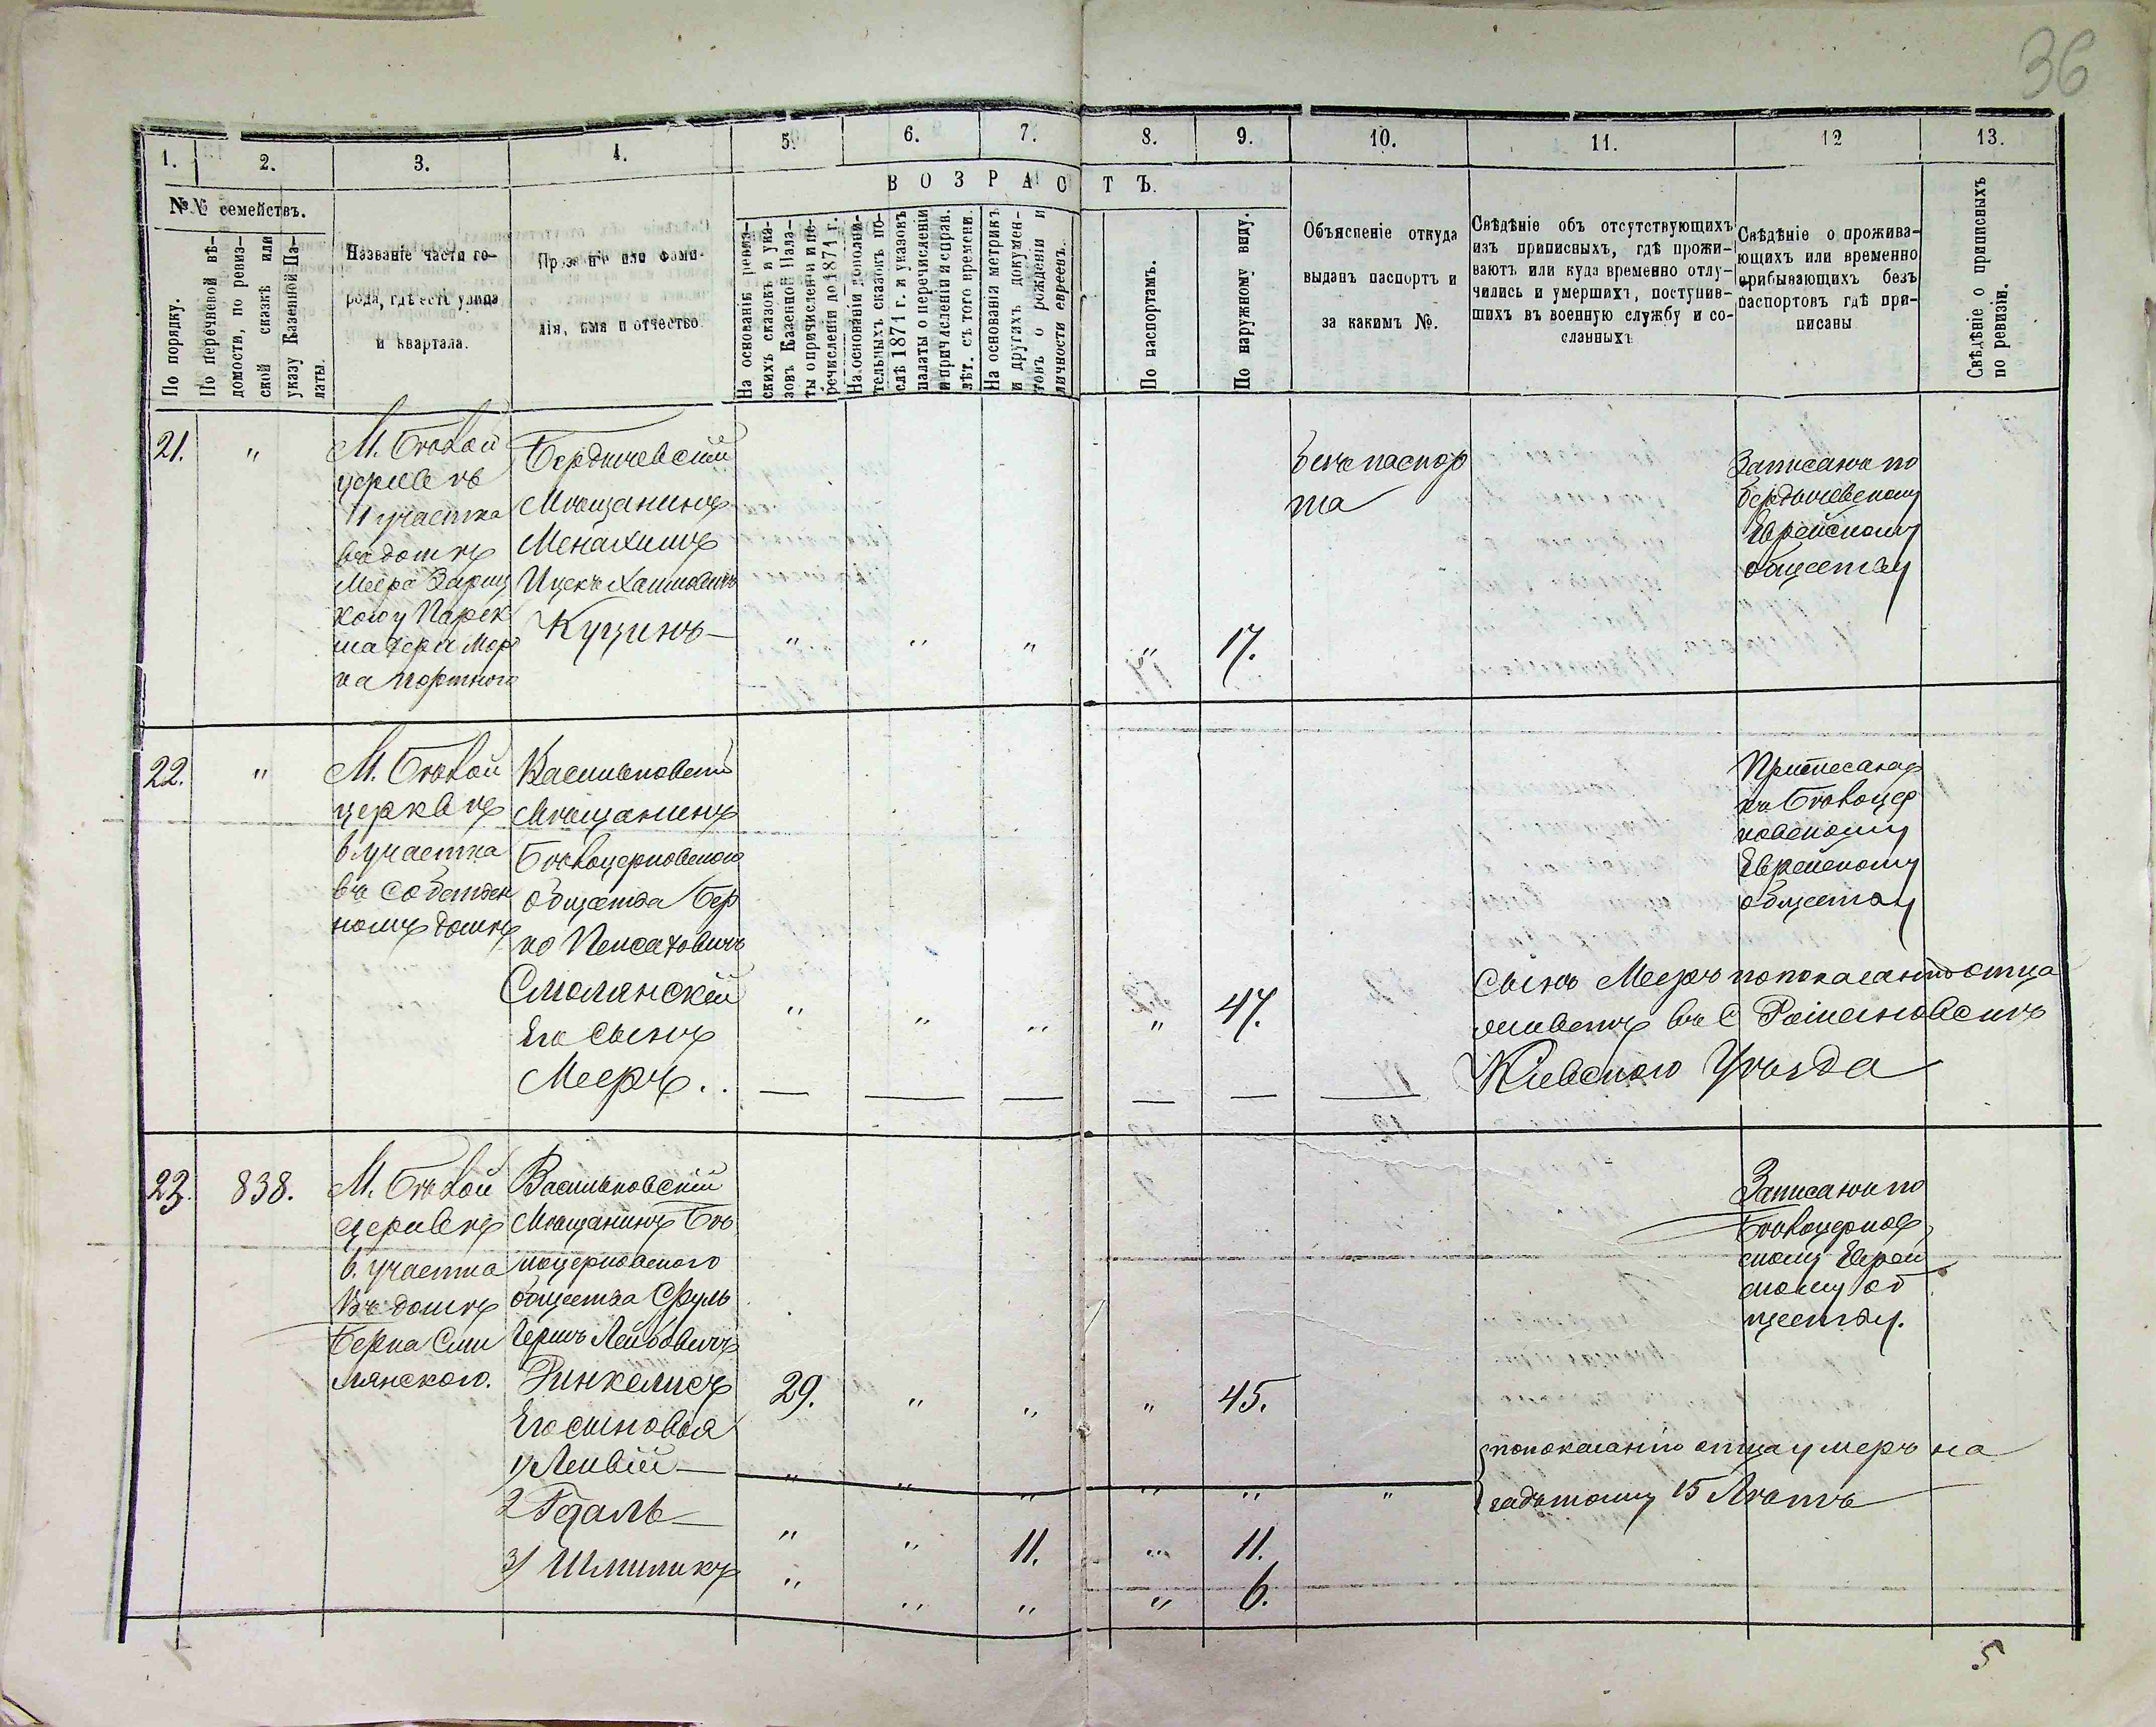 36
1. 2. 3. 4. 5. 6. 7. 8. 9. 10. 11. 12 13.
№№ семействъ.
По порядку.
По перечневой вѣ-
домости, по ревиз-
ской сказкѣ или
указу Казенной Па-
латы.
Названіе части го-
рода, гдѣ есть улица
и квартала.
Прозваніе или фами-
лія, имя и отчество.
ВОЗРАСТЪ.
На основаніи ревиз-
скихъ сказокъ и ука-
зовъ Казенной Пала-
ты о причисленіи и пе-
речисленіи до 1871 г.
На основаніи дополни-
тельныхъ сказокъ по-
слѣ 1871 г. и указовъ
палаты о перечисленіи
и причисленіи и справ.
лѣт. съ того времени.
На основаніи метрикъ
и другихъ докумен-
товъ о рожденіи и
личности евреевъ.
По паспортамъ.
По наружному виду.
Объясненіе откуда
выданъ паспортъ и
за какимъ №.
Свѣдѣніе объ отсутствующихъ
изъ приписныхъ, гдѣ прожи-
ваютъ или куда временно отлу-
чились и умершихъ, поступив-
шихъ въ военную службу и со-
сланныхъ
Свѣдѣніе о прожива-
ющихъ или временно
прибывающихъ безъ
паспортовъ гдѣ при-
писаны
Свѣдѣніе о приписныхъ
по ревизіи.
21. "
М. Бѣлой
церкв въ
11 участка
въ домѣ
Меера Зариц
кого у
портного
Бердичевскій
Мѣщанинъ
Менахимъ
Ицекъ Хаимовичъ
Куцинъ—
" " " " 17.
безъ паспор
та
Записанъ по
бердичевскому
Еврейскому
обществу
22. "
М. Бѣлой
церквѣ
6 участка
въ собствен
номъ домѣ
Васильковскій
Мѣщанинъ
Бѣлоцерковского
общества Бер
ко Пейсаховичъ
Смолянскій
" " " " 47.
Его сынъ
Мееръ..
Приписанъ
къ Бѣлоцер
ковскому
Еврейскому
обществу
Сынъ Мееръ по показанію отца
живетъ въ с Романовскихъ
Кіевского Уѣзда
23. 838.
М. Бѣлой
церквѣ
6. участка
въ домѣ
Берка Смо
лянского.
Васильковскій
Мѣщанинъ Бѣ
лоцерковского
общества Сруль
Гершъ Лейбовичъ
Ринкелисъ
29. " " " 45.
Его сыновья
1) Лейвій— " " " " " "
2 Гдаль— " " 11. " 11.
3) Шмиликъ " " " " 6.
Записанъ по
Бѣлоцерков
скому Еврей
скому об
ществу.
по показанію отца умеръ на
задъ тому 15 Лѣтъ
5